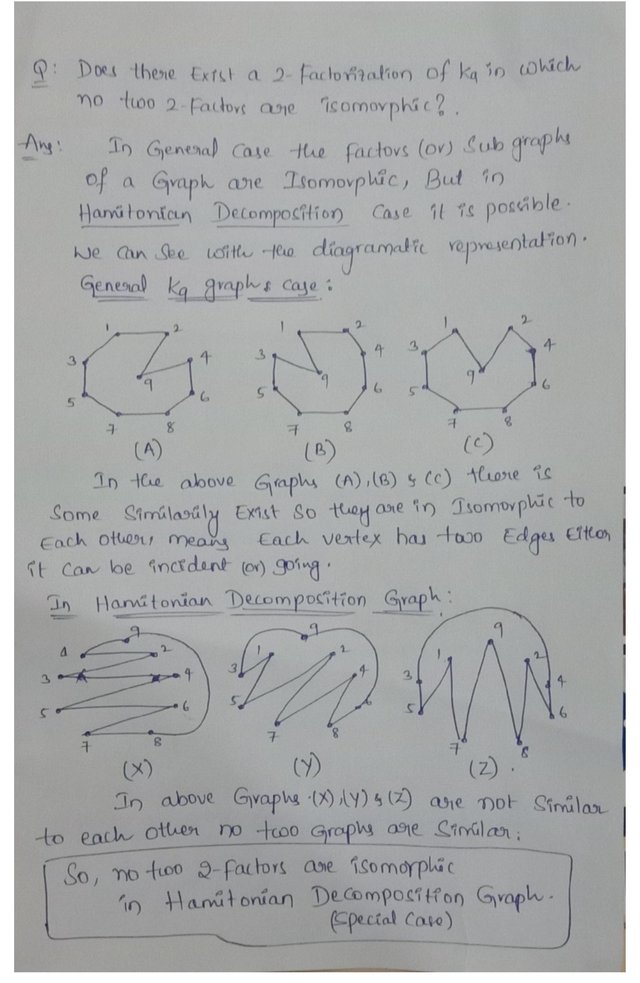 Q: Does there Exist a 2-Factorization of K9 in which
no two 2-Factors are isomorphic?.
Ans: In General Case the factors (or) Sub graphs
of a Graph are Isomorphic, But in
Hamitonian Decomposition Case it is possible.
We can See with the diagramatic representation.
General K9 graphs case:
1 2 3 4 5 6 7 8 9
1 2 3 4 5 6 7 8 9
1 2 3 4 5 6 7 8 9
(A) (B) (C)
In the above Graphs (A),(B) & (C) there is
Some Similarily Exist So they are in Isomorphic to
Each other, means Each vertex has two Edges Either
it can be incident (or) going.
In Hamitonian Decomposition Graph:
1 2 3 4 5 6 7 8 9
1 2 3 4 5 6 7 8 9
1 2 3 4 5 6 7 8 9
(X) (Y) (Z).
In above Graphs (X),(Y) & (Z) are not Similar
to each other no two Graphs are Similar:
So, no two 2-factors are isomorphic
in Hamitonian Decomposition Graph.
(Special Case)